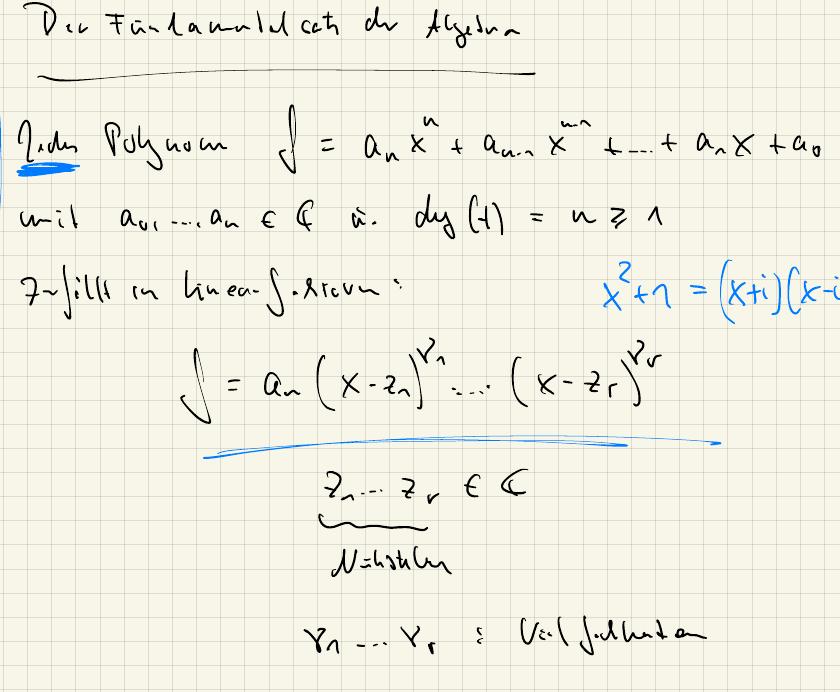 Der Fundamentalsatz der Algebra
Jedes Polynom f = aₙ xⁿ + aₙ₋₁ xⁿ⁻¹ + ... + a₁ x + a₀
mit a₀, ..., aₙ ∈ ℂ u. deg (f) = n ≥ 1
Zerfällt in Linearfaktoren:
x² + 1 = (x+i)(x-i
f = aₙ (x - z₁)^γ₁ ... (x - zᵣ)^γᵣ
z₁ ... zᵣ ∈ ℂ
Nullstellen
γ₁ ... γᵣ : Vielfachheiten